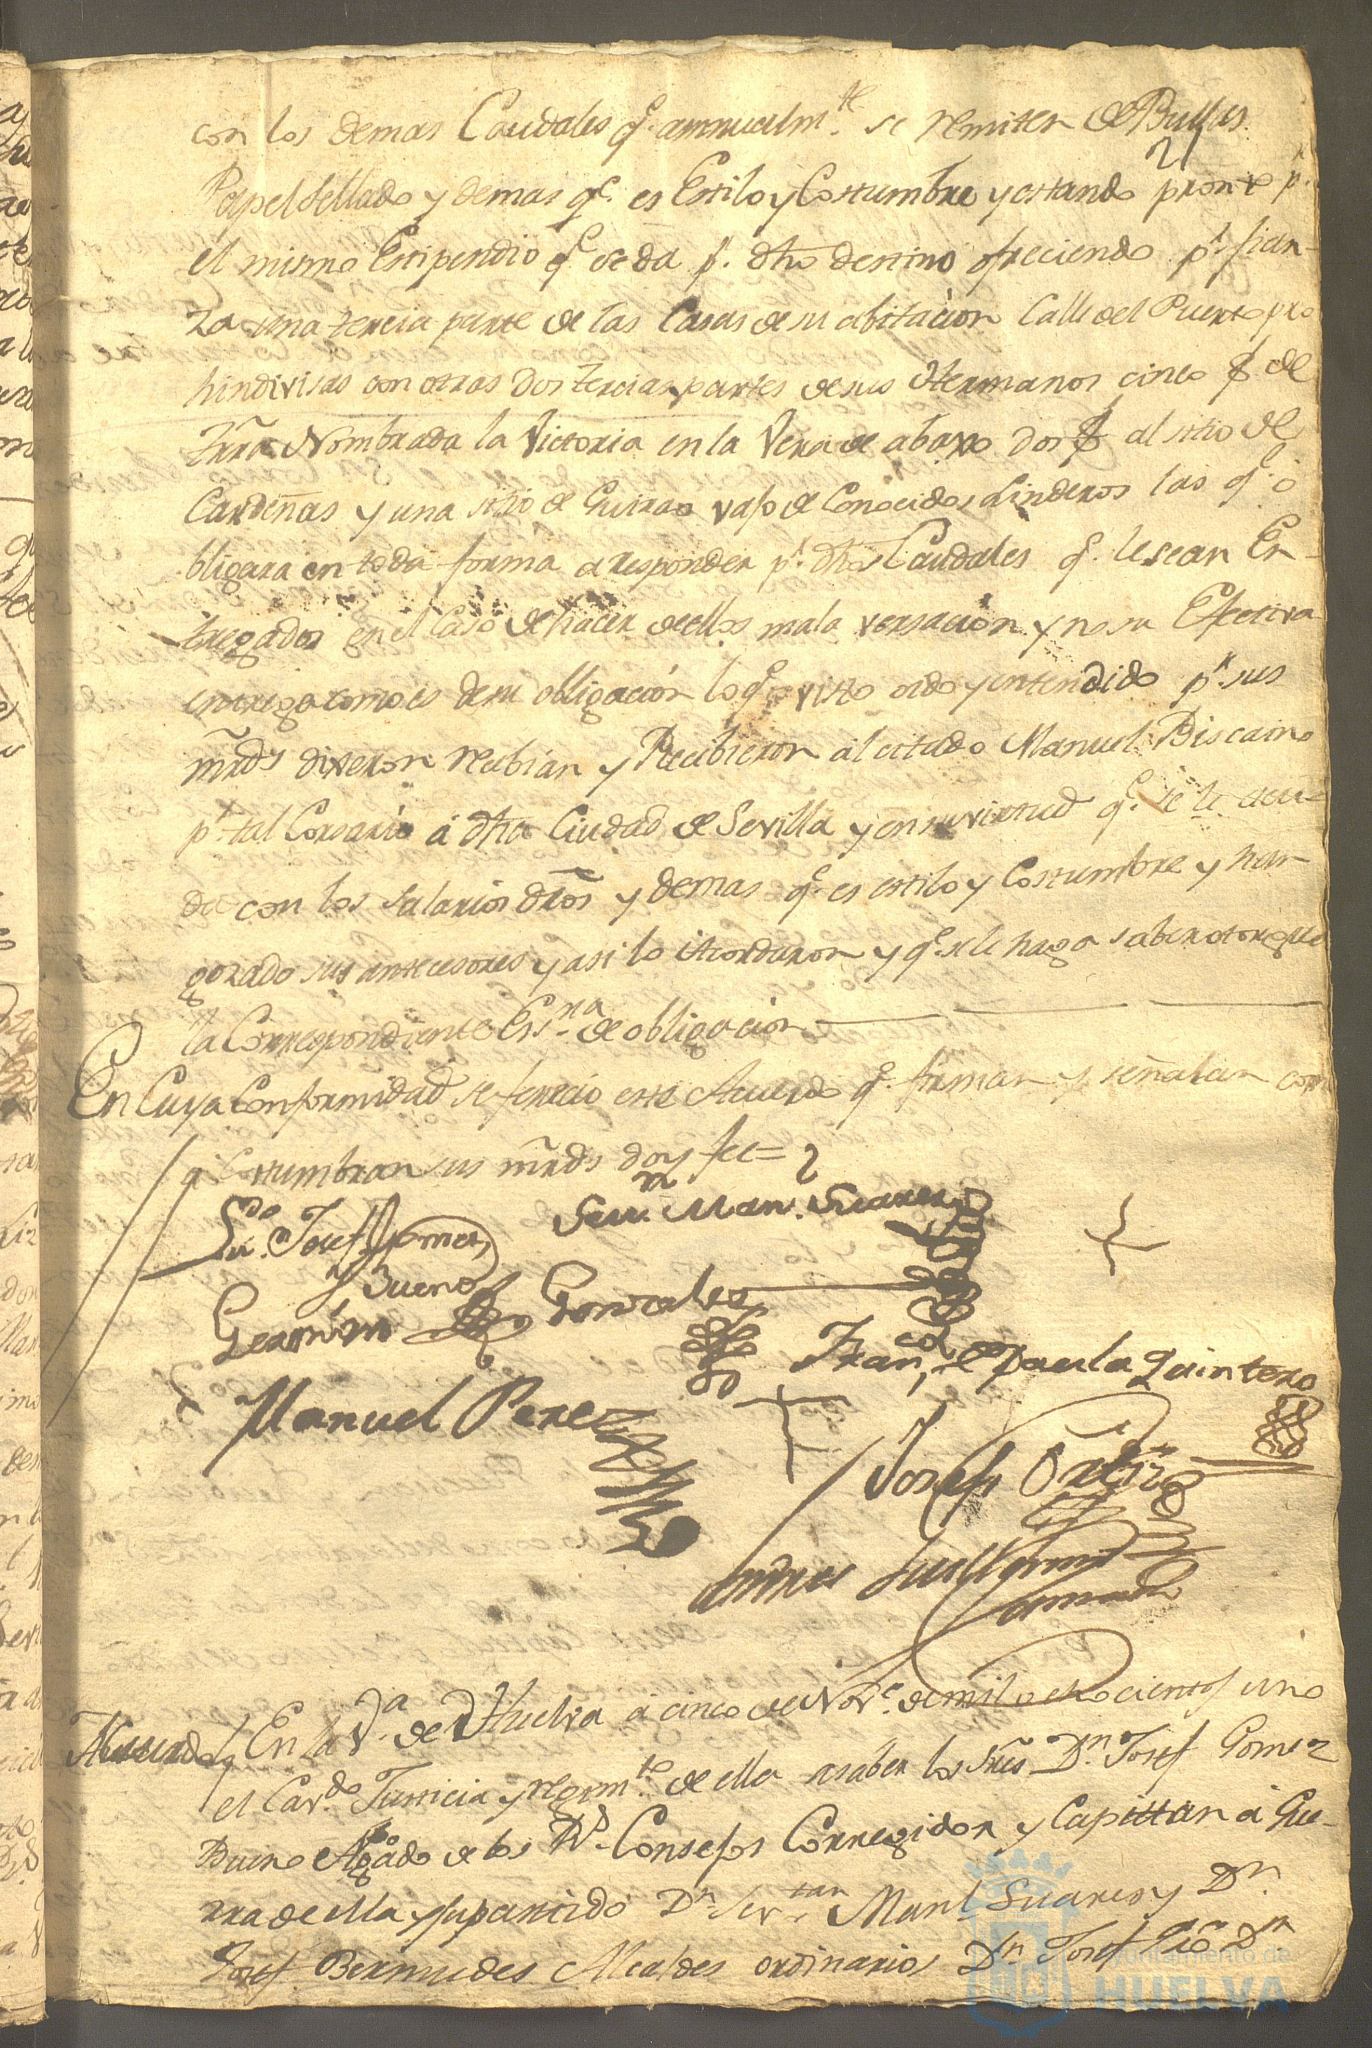 con los demas Caudales q.e annualm.te se remiten de Bullas
21
Papel sellado y demas q.e es Estilo y Costumbre y estando pronto p.r
el mismo Estipendio q.e se da p.r dho destino ofreciendo p.r fian-
za una tercia parte de las Casas de su abitacion Calle del Puerto pro
hindivisas con otras dos tercias partes de sus Hermanos cinco de
trrã Nombrada la Victoria en la Vera de abaxo dos al sitio de
Cardeñas y una sitio de vaso de Conocidos Linderos las q.e o
bligara en toda forma a responder p.r dhos Caudales q.e le sean En-
tregados en el Caso de hacer de ellos mala versacion y no su Efectiva
entrega como es de su obligacion lo q.e visto oido y entendido p.r sus
mrds dixeron recibian y Recibieron al citado Manuel Biscaino
p.r tal Corsario á dha Ciudad de Sevilla y en su virtud q.e se le acu-
da con los salarios dros y demas q.e es estilo y Costumbre y han
gozado sus antecesores y asi lo Acordaron y q.e se le haga saber otorgue
la Correspondiente Ess.na de obligacion
En Cuya Conformidad se fenecio este Acuerdo q.e firman y señalan como
q.e Costumbran sus mrds doy fee=
Ldo. Josef Gomez
y Bueno
Sevn. Man. Suarez
Geronimo Gonzales
Franco. de Paula Quintero
Manuel Perez
Josef Ortiz
Andres Guillermo
Acuerdo En la V.a de Huelva á cinco de Nov.e de mil ochocientos uno
el Cav.do Justicia y regim.to de ella asaber los Sres D.n Josef Gomez
Bueno Abgado de los R.s Consejos Corregidor y Capittan á Gue-
rra de ella y su partido D.n Sevtan Man.l Suares y D.n
Josef Bermudes Alcaldes ordinarios D.n Josef D.n
Ayuntamiento de
HUELVA